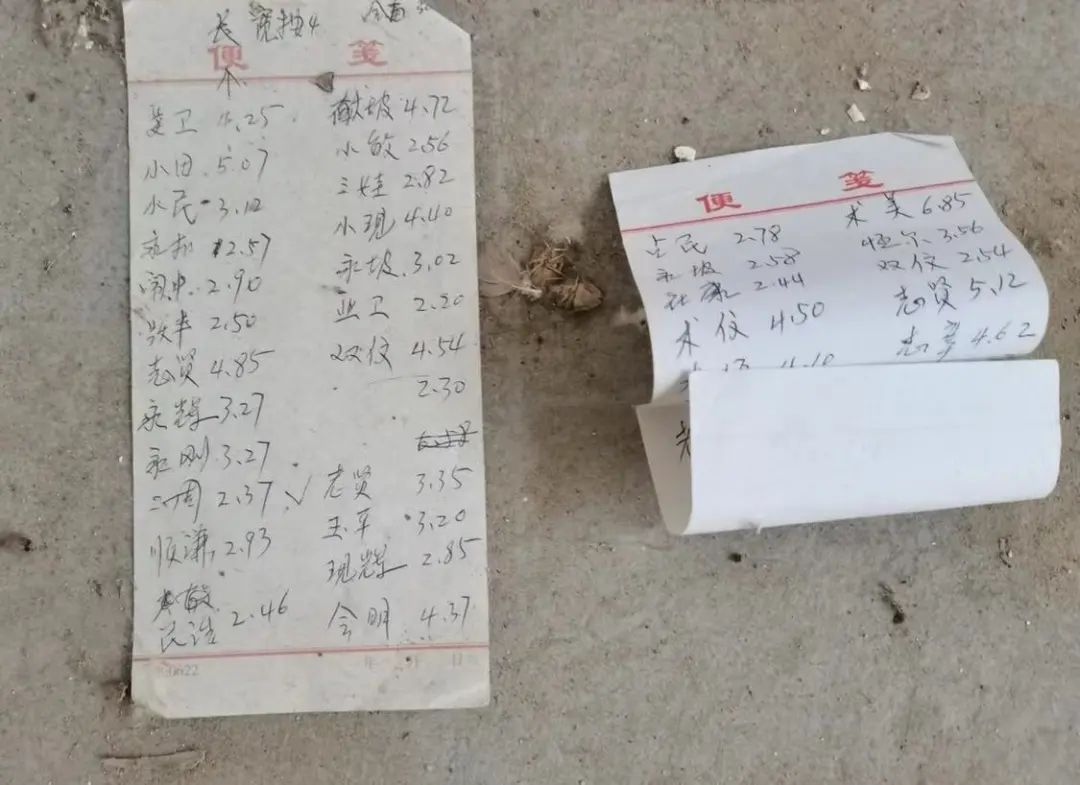 长 宽按4 全面
便 笺
卫 4.25
小田 5.07
小民 3.12
永 2.57
闹中 2.90
跃丰 2.50
志贤 4.85
永辉 3.27
永刚 3.27
二周 2.37 √
顺谦 2.93
敏
民浩 2.46
献坡 4.72
小敏 2.56
三娃 2.82
小现 4.40
永坡 3.02
业卫 2.20
双仪 4.54
2.30
志贤 3.35
玉平 3.20
现辉 2.85
会明 4.37
年 月 日
便 笺
占民 2.78
永坡 2.58
2.44
术仪 4.50
4.10
术美 6.85
恒尔 3.56
双仪 2.54
志贤 5.12
志 4.62